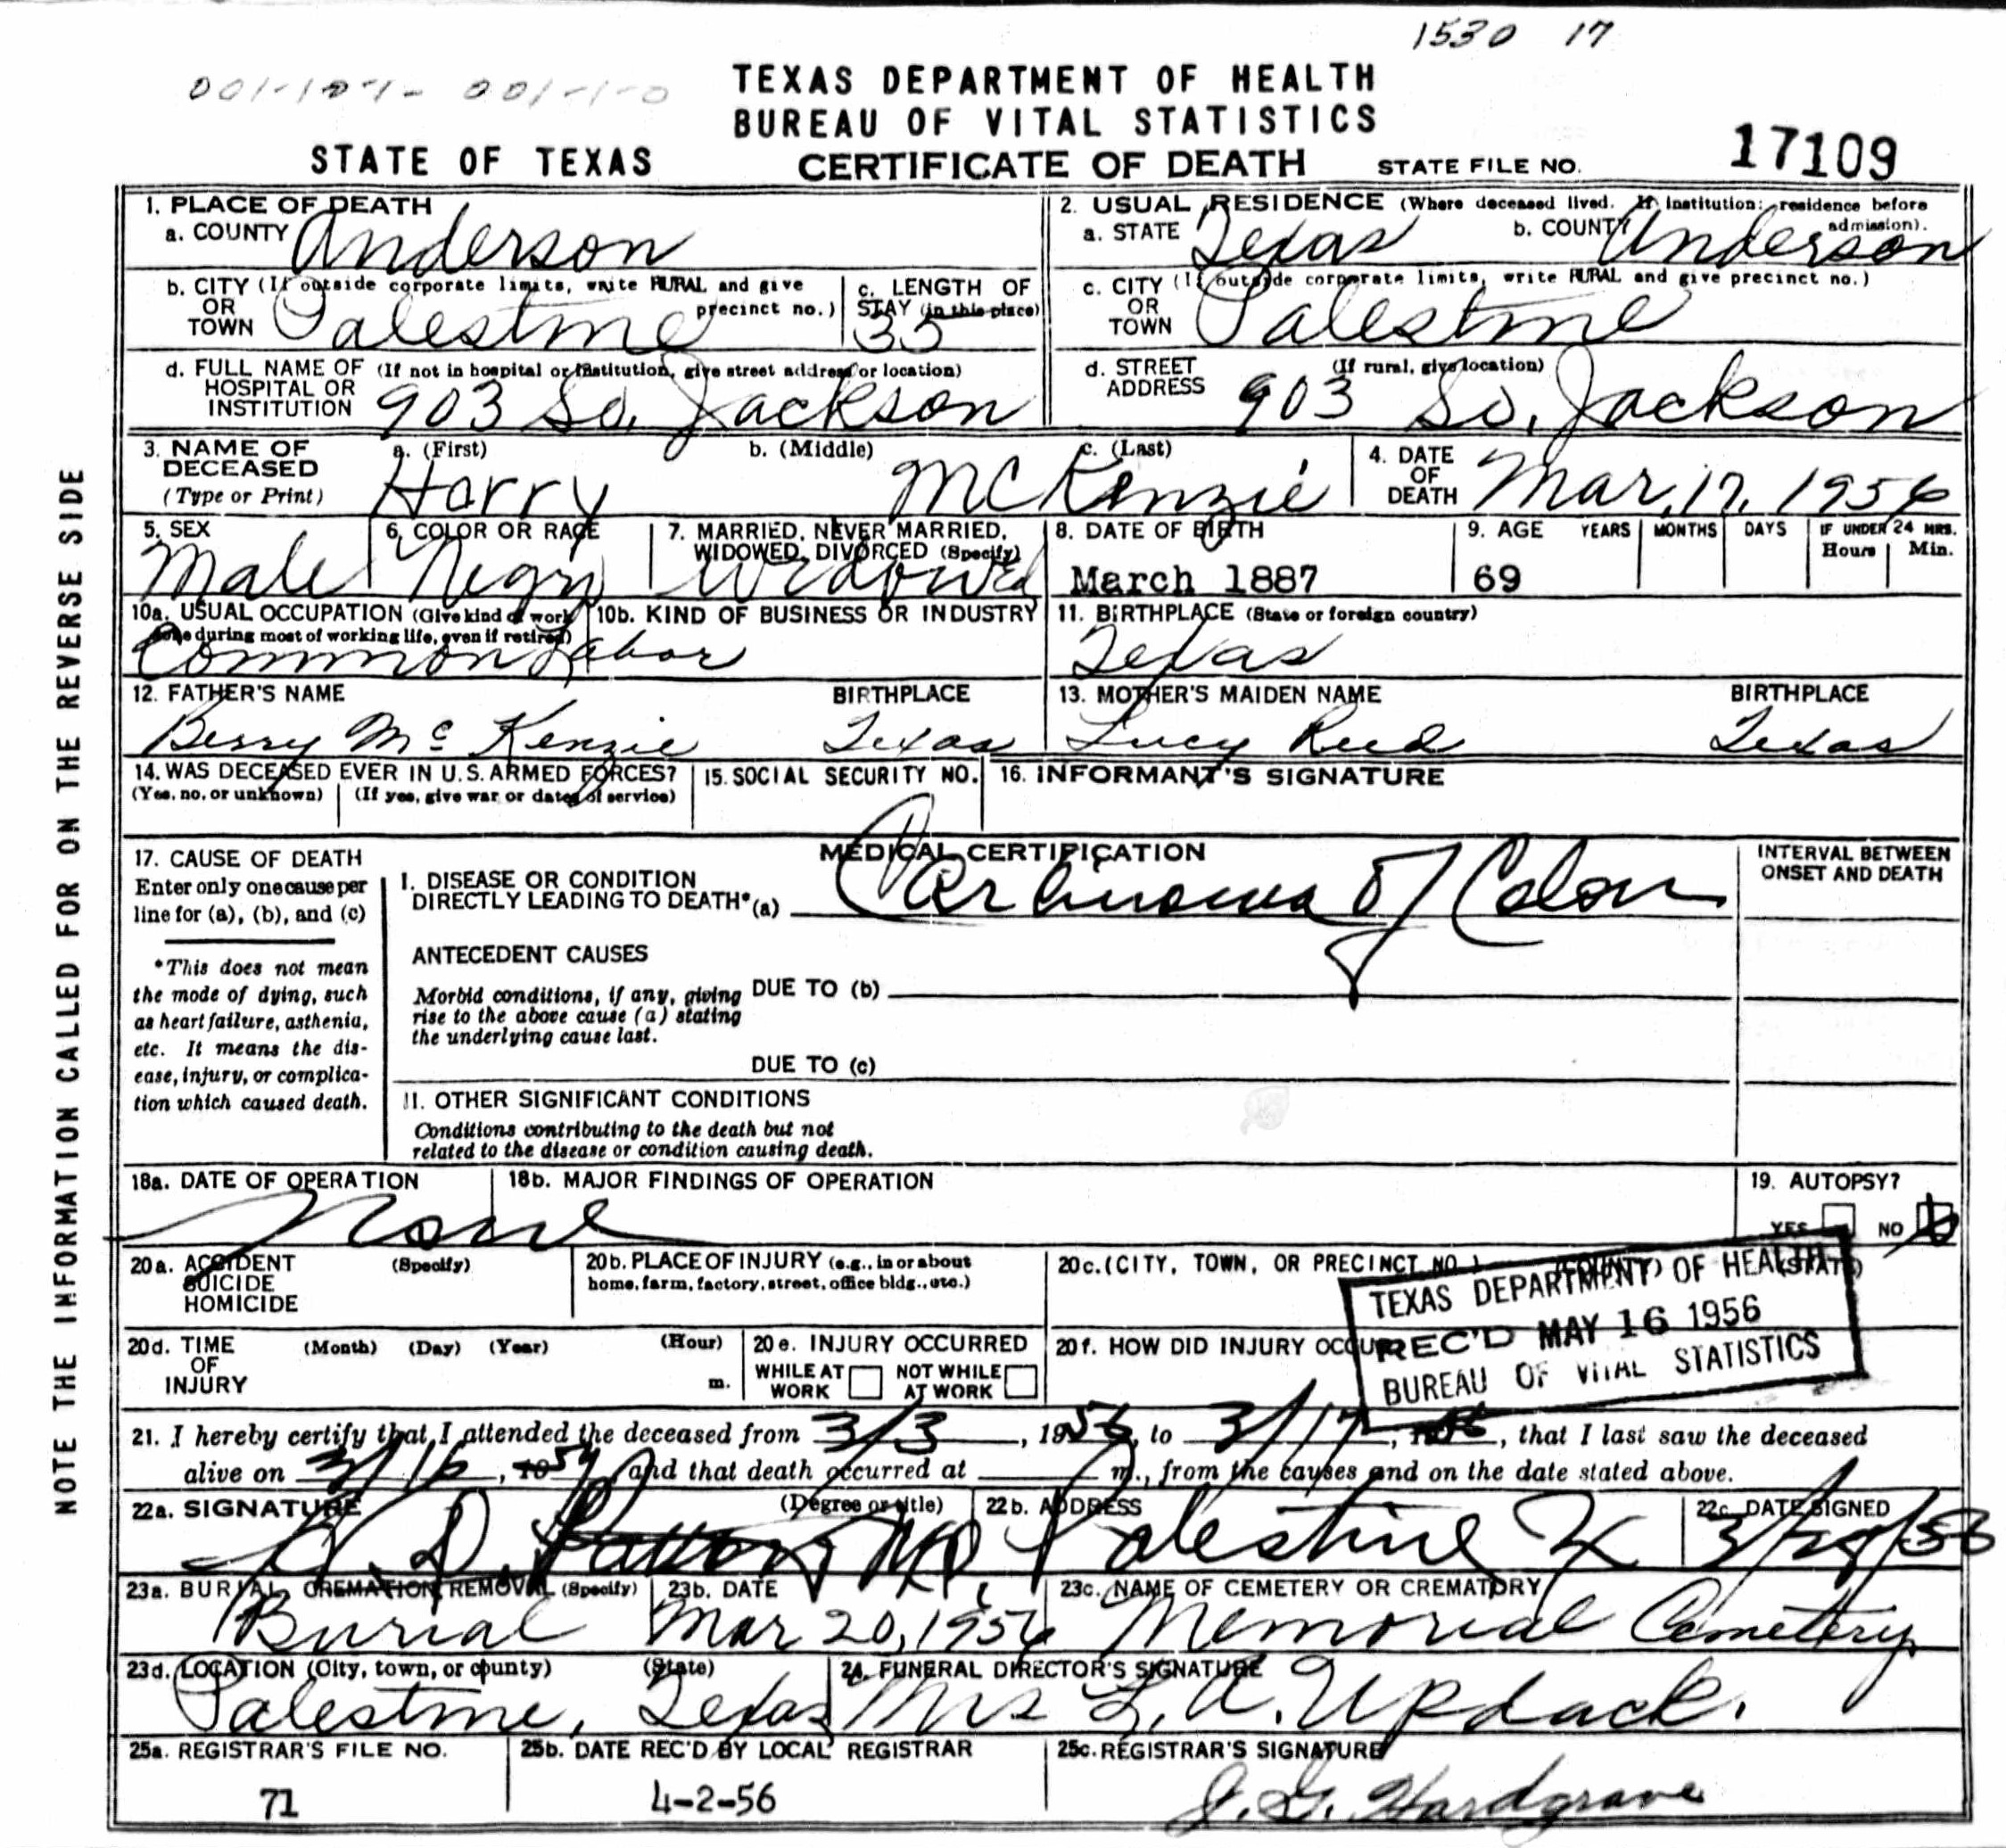 1530 17
001-107- 001-1-0
TEXAS DEPARTMENT OF HEALTH
BUREAU OF VITAL STATISTICS
STATE OF TEXAS CERTIFICATE OF DEATH STATE FILE NO. 17109
NOTE THE INFORMATION CALLED FOR ON THE REVERSE SIDE
1. PLACE OF DEATH
a. COUNTY Anderson
2. USUAL RESIDENCE (Where deceased lived. If institution: residence before admission).
a. STATE Texas b. COUNTY Anderson
b. CITY (If outside corporate limits, write RURAL and give precinct no.)
OR TOWN Palestine
c. LENGTH OF STAY (in this place) 35
c. CITY (If outside corporate limits, write RURAL and give precinct no.)
OR TOWN Palestine
d. FULL NAME OF HOSPITAL OR INSTITUTION (If not in hospital or institution, give street address or location)
903 So. Jackson
d. STREET ADDRESS (If rural, give location)
903 So. Jackson
3. NAME OF DECEASED (Type or Print)
a. (First) b. (Middle) c. (Last)
Harry McKenzie
4. DATE OF DEATH Mar, 17, 1956
5. SEX Male
6. COLOR OR RACE Negro
7. MARRIED, NEVER MARRIED, WIDOWED, DIVORCED (Specify) Widowed
8. DATE OF BIRTH March 1887
9. AGE YEARS MONTHS DAYS IF UNDER 24 HRS. Hours Min.
69
10a. USUAL OCCUPATION (Give kind of work done during most of working life, even if retired)
10b. KIND OF BUSINESS OR INDUSTRY
Common Labor
11. BIRTHPLACE (State or foreign country)
Texas
12. FATHER'S NAME BIRTHPLACE
Berry McKenzie Texas
13. MOTHER'S MAIDEN NAME BIRTHPLACE
Lucy Reed Texas
14. WAS DECEASED EVER IN U.S. ARMED FORCES?
(Yes, no, or unknown) (If yes, give war or dates of service)
15. SOCIAL SECURITY NO.
16. INFORMANT'S SIGNATURE
17. CAUSE OF DEATH
Enter only one cause per
line for (a), (b), and (c)
*This does not mean
the mode of dying, such
as heart failure, asthenia,
etc. It means the dis-
ease, injury, or complica-
tion which caused death.
MEDICAL CERTIFICATION
INTERVAL BETWEEN ONSET AND DEATH
I. DISEASE OR CONDITION
DIRECTLY LEADING TO DEATH* (a) Carcinoma of Colon
ANTECEDENT CAUSES
Morbid conditions, if any, giving
rise to the above cause (a) stating
the underlying cause last.
DUE TO (b)
DUE TO (c)
II. OTHER SIGNIFICANT CONDITIONS
Conditions contributing to the death but not
related to the disease or condition causing death.
18a. DATE OF OPERATION
None
18b. MAJOR FINDINGS OF OPERATION
19. AUTOPSY?
YES NO
20a. ACCIDENT SUICIDE HOMICIDE (Specify)
20b. PLACE OF INJURY (e.g., in or about
home, farm, factory, street, office bldg., etc.)
20c. (CITY, TOWN, OR PRECINCT NO.) (COUNTY) (STATE)
TEXAS DEPARTMENT OF HEALTH
REC'D MAY 16 1956
BUREAU OF VITAL STATISTICS
20d. TIME OF INJURY (Month) (Day) (Year) (Hour) m.
20e. INJURY OCCURRED
WHILE AT WORK NOT WHILE AT WORK
20f. HOW DID INJURY OCCUR
21. I hereby certify that I attended the deceased from 3/3, 1956, to 3/17, 1956, that I last saw the deceased
alive on 3/16, 1956 and that death occurred at m., from the causes and on the date stated above.
22a. SIGNATURE (Degree or title)
D. Patton MD
22b. ADDRESS Palestine Tx
22c. DATE SIGNED
23a. BURIAL, CREMATION, REMOVAL (Specify)
Burial
23b. DATE
Mar 20, 1956
23c. NAME OF CEMETERY OR CREMATORY
Memorial Cemetery
23d. LOCATION (City, town, or county) (State)
Palestine, Texas
24. FUNERAL DIRECTOR'S SIGNATURE
Mrs L. A. Updack.
25a. REGISTRAR'S FILE NO.
71
25b. DATE REC'D BY LOCAL REGISTRAR
4-2-56
25c. REGISTRAR'S SIGNATURE
J. G. Hardgrave